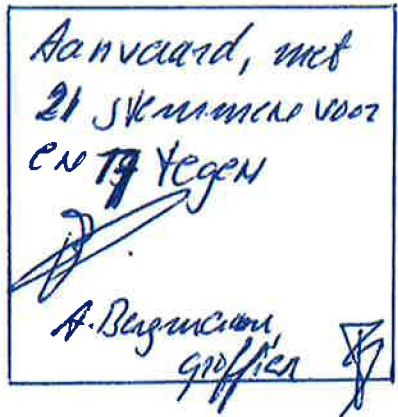 Aanvaard, met
21 stemmen voor
en tegen
A. Bergman,
griffier